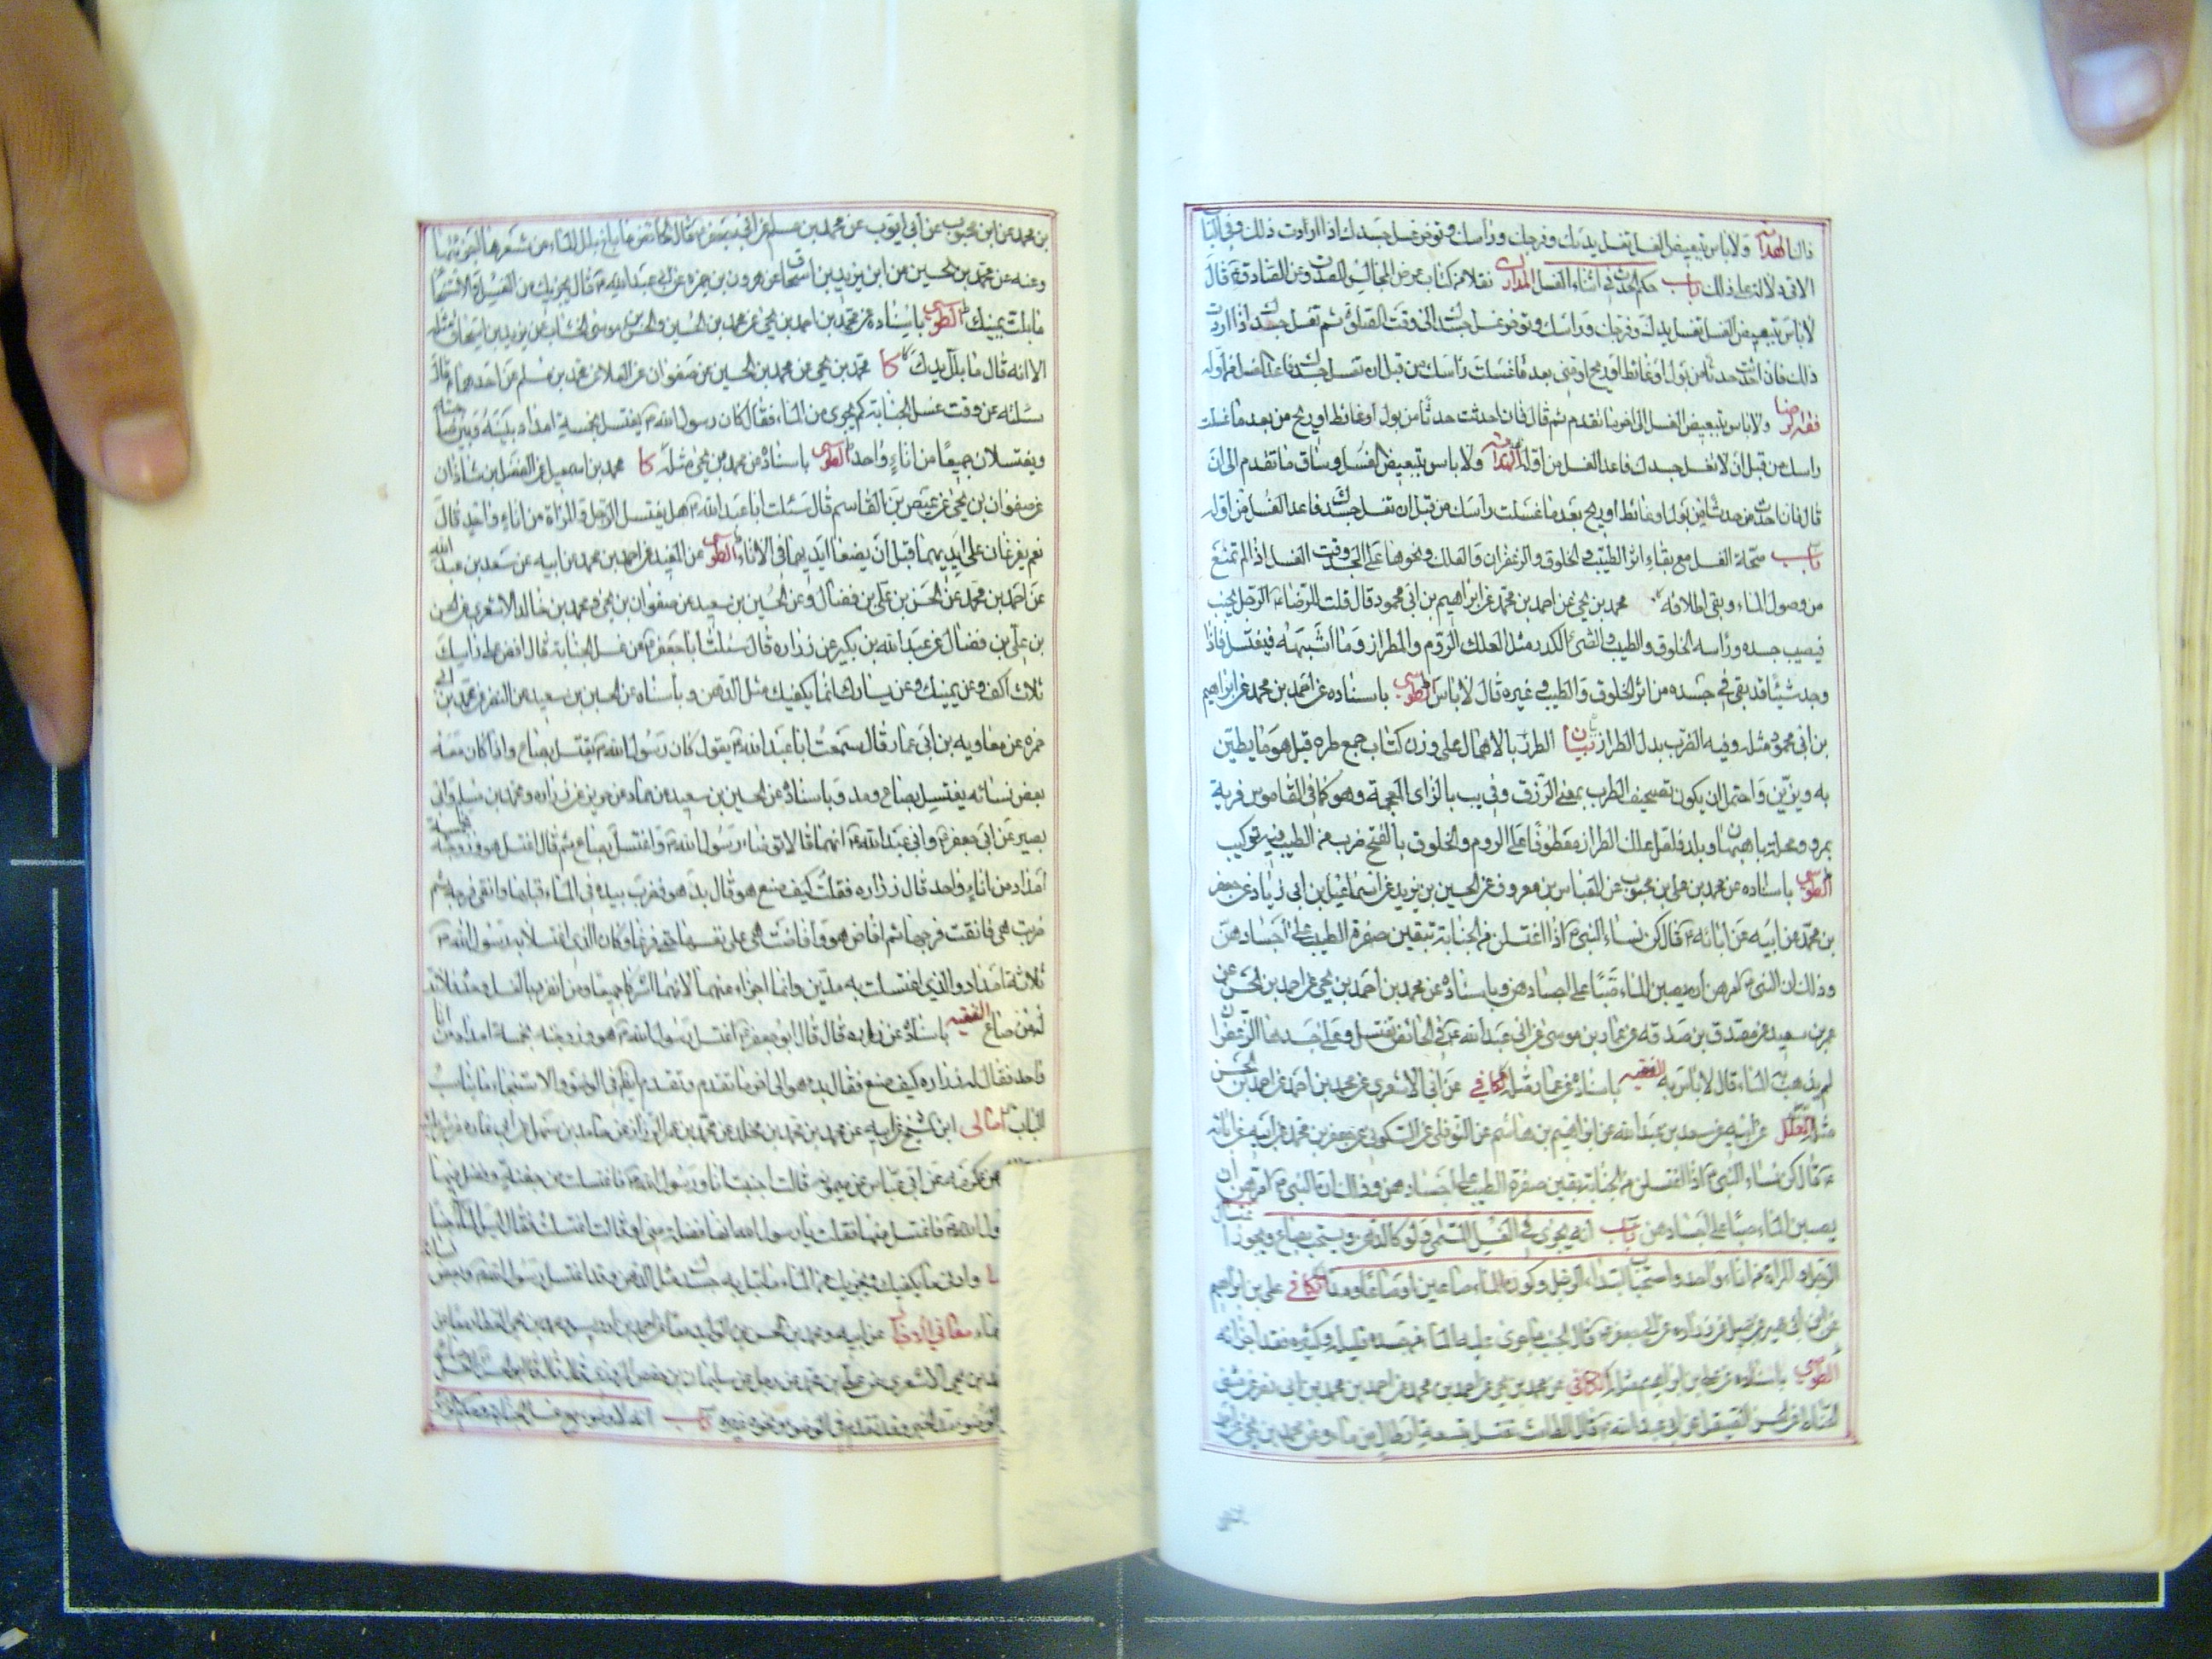 قال الهداية ولا باس بتبعيض الغسل تغسل يديك وفرجك وراسك وتوخر غسل جسدك اذا اردت ذلك وفي الباب
الاتي دلالة على ذلك باب حكم الحدث في اثناء الغسل المدارك نقلا من كتاب عرض المجالس للصدوق عن الصادق ع قال
لا باس بتبعيض الغسل تغسل يدك وفرجك وراسك وتوخر غسل جسدك الى وقت الصلوة ثم تغسل جسدك اذا اردت
ذلك فان احدثت حدثا من بول او غائط او ريح او مني بعد ما غسلت راسك من قبل ان تغسل جسدك فاعد الغسل من اوله
فقه الرضا ولا باس بتبعيض الغسل الى اخر ما تقدم ثم قال فان احدثت حدثا من بول او غائط او ريح من بعد ما غسلت
راسك من قبل ان لا تغسل جسدك فاعد الغسل من اوله الهداية ولا باس بتبعيض الغسل وساق ما تقدم الى ان
قال فان احدثت من حدثا من بول او غائط او ريح بعد ما غسلت راسك من قبل ان تغسل جسدك فاعد الغسل من اوله
باب صحة الغسل مع بقاء اثر الطيب والخلوق والزعفران والعلك ونحوها على الجسد وقت الغسل اذا لم تمنع
من وصول الماء وبقي اطلاقه محمد بن يحيى عن احمد بن محمد عن ابراهيم بن ابي محمود قال قلت للرضا ع الرجل يجنب
فيصيب جسده وراسه الخلوق والطيب والشئ اللكد مثل العلك الروم والطراز وما اشبهه فيغتسل فاذا
وجد شيئا قد بقي في جسده من اثر الخلوق والطيب وغيره قال لا باس الطوسي باسناده عن احمد بن محمد عن ابراهيم
بن ابي محمود مثله وفيه الضرب بدل الطراز بيان الطرر بالاهمال على وزن كتاب جمع طره قيل هو ما يطين
به ويزين واحتمل ان يكون تصحيف الطرب بمعنى اللزق وفي يب بالزاي المعجمة وهو كما في القاموس قرية
بمرو ومحلة باصبهان وبلد فلعل علك الطراز معطوفا على الروم والخلوق بالفتح ضرب من الطيب فيه تركيب
الطوسي باسناده عن محمد بن علي بن محبوب عن العباس بن معروف عن الحسين بن يزيد عن اسماعيل بن ابي زياد عن جعفر
بن محمد عن ابيه عن ابائه ع قال كن نساء النبي ص اذا اغتسلن من الجنابة تبقين صفرة الطيب على اجسادهن
وذلك ان النبي ص امرهن ان يصببن الماء صبا على اجسادهن وباسناده عن محمد بن احمد بن يحيى عن احمد بن الحسن عن
عمرو بن سعيد عن مصدق بن صدقه عن عمار بن موسى عن ابي عبد الله ع في الحائض تغتسل وعلى جسدها الزعفران
لم يذهب به الماء قال لا باس به الفقيه باسناده عن عمار مثله الكافي عن ابي الاشعري عن محمد بن احمد عن احمد بن الحسن
مثله العلل عن ابيه عن سعد بن عبد الله عن ابراهيم بن هاشم عن النوفلي عن السكوني عن جعفر بن محمد عن ابيه عن ابائه
ع قال كن نساء النبي ص اذا اغتسلن من الجنابة بقين صفرة الطيب على اجسادهن وذلك ان النبي ص امرهن ان
يصببن الماء صبا على اجسادهن باب انه يجزي في الغسل المسمى ولو كالدهن ويستحب بصاع ويجوز اغتسال
الرجل والمراة من اناء واحد واستحباب ابتداء الرجل وكون الماء صاعين او صاعا ومدا الكافي علي بن ابراهيم
عن ابيه عن ابن ابي عمير عن جميل عن زراره عن ابي جعفر ع قال الجنب ما جرى عليه الماء من جسده قليله وكثيره فقد اجزاه
الطوسي باسناده عن علي بن ابراهيم مثله الكافي عن محمد بن يحيى عن احمد بن محمد عن احمد بن محمد بن ابي نصر عن مثنى
الحناط عن الحسن الصيقل عن ابي عبد الله ع قال الطامث تغتسل بتسعة ارطال من ماء وعن محمد بن يحيى عن احمد
بن محمد عن ابن محبوب عن ابي ايوب عن محمد بن مسلم عن ابي جعفر ع قال الحائض ما بلغ بلل الماء من شعرها اجزئها
وعنه عن محمد بن الحسين عن ابن يزيد بن اسحاق عن هرون بن حمزه عن ابي عبد الله ع قال يجزيك من الغسل والاستنجاء
ما بلت يمينك الطوسي باسناده عن محمد بن احمد بن يحيى عن محمد بن الحسين والحسن بن موسى الخشاب عن يزيد بن اسحاق مثله
الا انه قال ما بللت يدك كا محمد بن يحيى عن محمد بن الحسين عن صفوان عن العلا عن محمد بن مسلم عن احدهما ع قال
سئلته عن وقت غسل الجنابة كم يجزي من الماء فقال كان رسول الله ص يغتسل بخمسة امداد بينه وبين صاحبته
ويغتسلان جميعا من اناء واحد الطوسي باسناده عن محمد بن يحيى مثله كا محمد بن اسمعيل عن الفضل بن شاذان
عن صفوان بن يحيى عن عيص بن القاسم قال سئلت ابا عبد الله ع هل يغتسل الرجل والمراة من اناء واحد قال
نعم يفرغان على ايديهما قبل ان يضعا ايديهما في الاناء الطوسي عن المفيد عن احمد بن محمد عن ابيه عن سعد بن عبد الله
عن احمد بن محمد عن الحسن بن علي بن فضال وعن الحسين بن سعيد عن صفوان بن يحيى ومحمد بن خالد الاشعري عن الحسن
بن علي بن فضال عن عبد الله بن بكير عن زراره قال سئلت ابا جعفر ع عن غسل الجنابة قال افض على راسك
ثلاث اكف وعن يمينك وعن يسارك انما يكفيك مثل الدهن وباسناده عن الحسين بن سعيد عن النضر عن محمد بن ابي
حمزه عن معاويه بن عمار قال سمعت ابا عبد الله ع يقول كان رسول الله ص يغتسل بصاع واذا كان معه
بعض نسائه يغتسل بصاع ومد وباسناده عن الحسين بن سعيد عن حماد عن حريز عن زراره ومحمد بن مسلم وابي
بصير عن ابي جعفر ع وابي عبد الله ع انهما قالا توضا رسول الله ص واغتسل بصاع ثم قال اغتسل هو وزوجته بخمسة
امداد من اناء واحد قال زراره فقلت كيف صنع هو قال بدء هو فضرب بيده في الماء قبلها وانقى فرجه ثم
ضربت هي فانقت فرجها ثم افاض هو وافاضت هي على نفسها حتى فرغا وكان الذي اغتسل به رسول الله ص
ثلاثة امداد والذي اغتسلت به مدين وانما اجزاء عنهما لانهما اشتركا جميعا ومن انفرد بالغسل وحده فلا بد
له من صاع الفقيه باسناده عن زراره قال قال ابو جعفر ع اغتسل رسول الله ص هو وزوجته بخمسة امداد من اناء
واحد فقال له زراره كيف صنع فقال بدء هو الى اخر ما تقدم وتقدم ايضا في الوضوء والاستنجاء ما يناسب
الباب امالي ابن الشيخ عن ابيه عن محمد بن محمد بن مخلد عن محمد بن عمرو
عن عكرمه عن ابن عباس عن ميمونه قالت اجنبت انا ورسول الله ص فاغتسلت من جفنة وفضل فيها
فاغتسل منها فقلت يا رسول الله انها فضلة مني
وادنى ما يكفيك ويجزيك من الماء ما تبل به جسدك مثل الدهن وقد اغتسل رسول الله ص وبعض نسائه
معاني الاخبار عن ابيه ومحمد بن الحسن بن الوليد
بن يحيى الاشعري عن علي بن محمد عن رجل عن سليمان بن حفص المروزي قال قال ابو الحسن ع الغسل بصاع
الخبر وقد تقدم في الوضوء ونحوه غيره باب